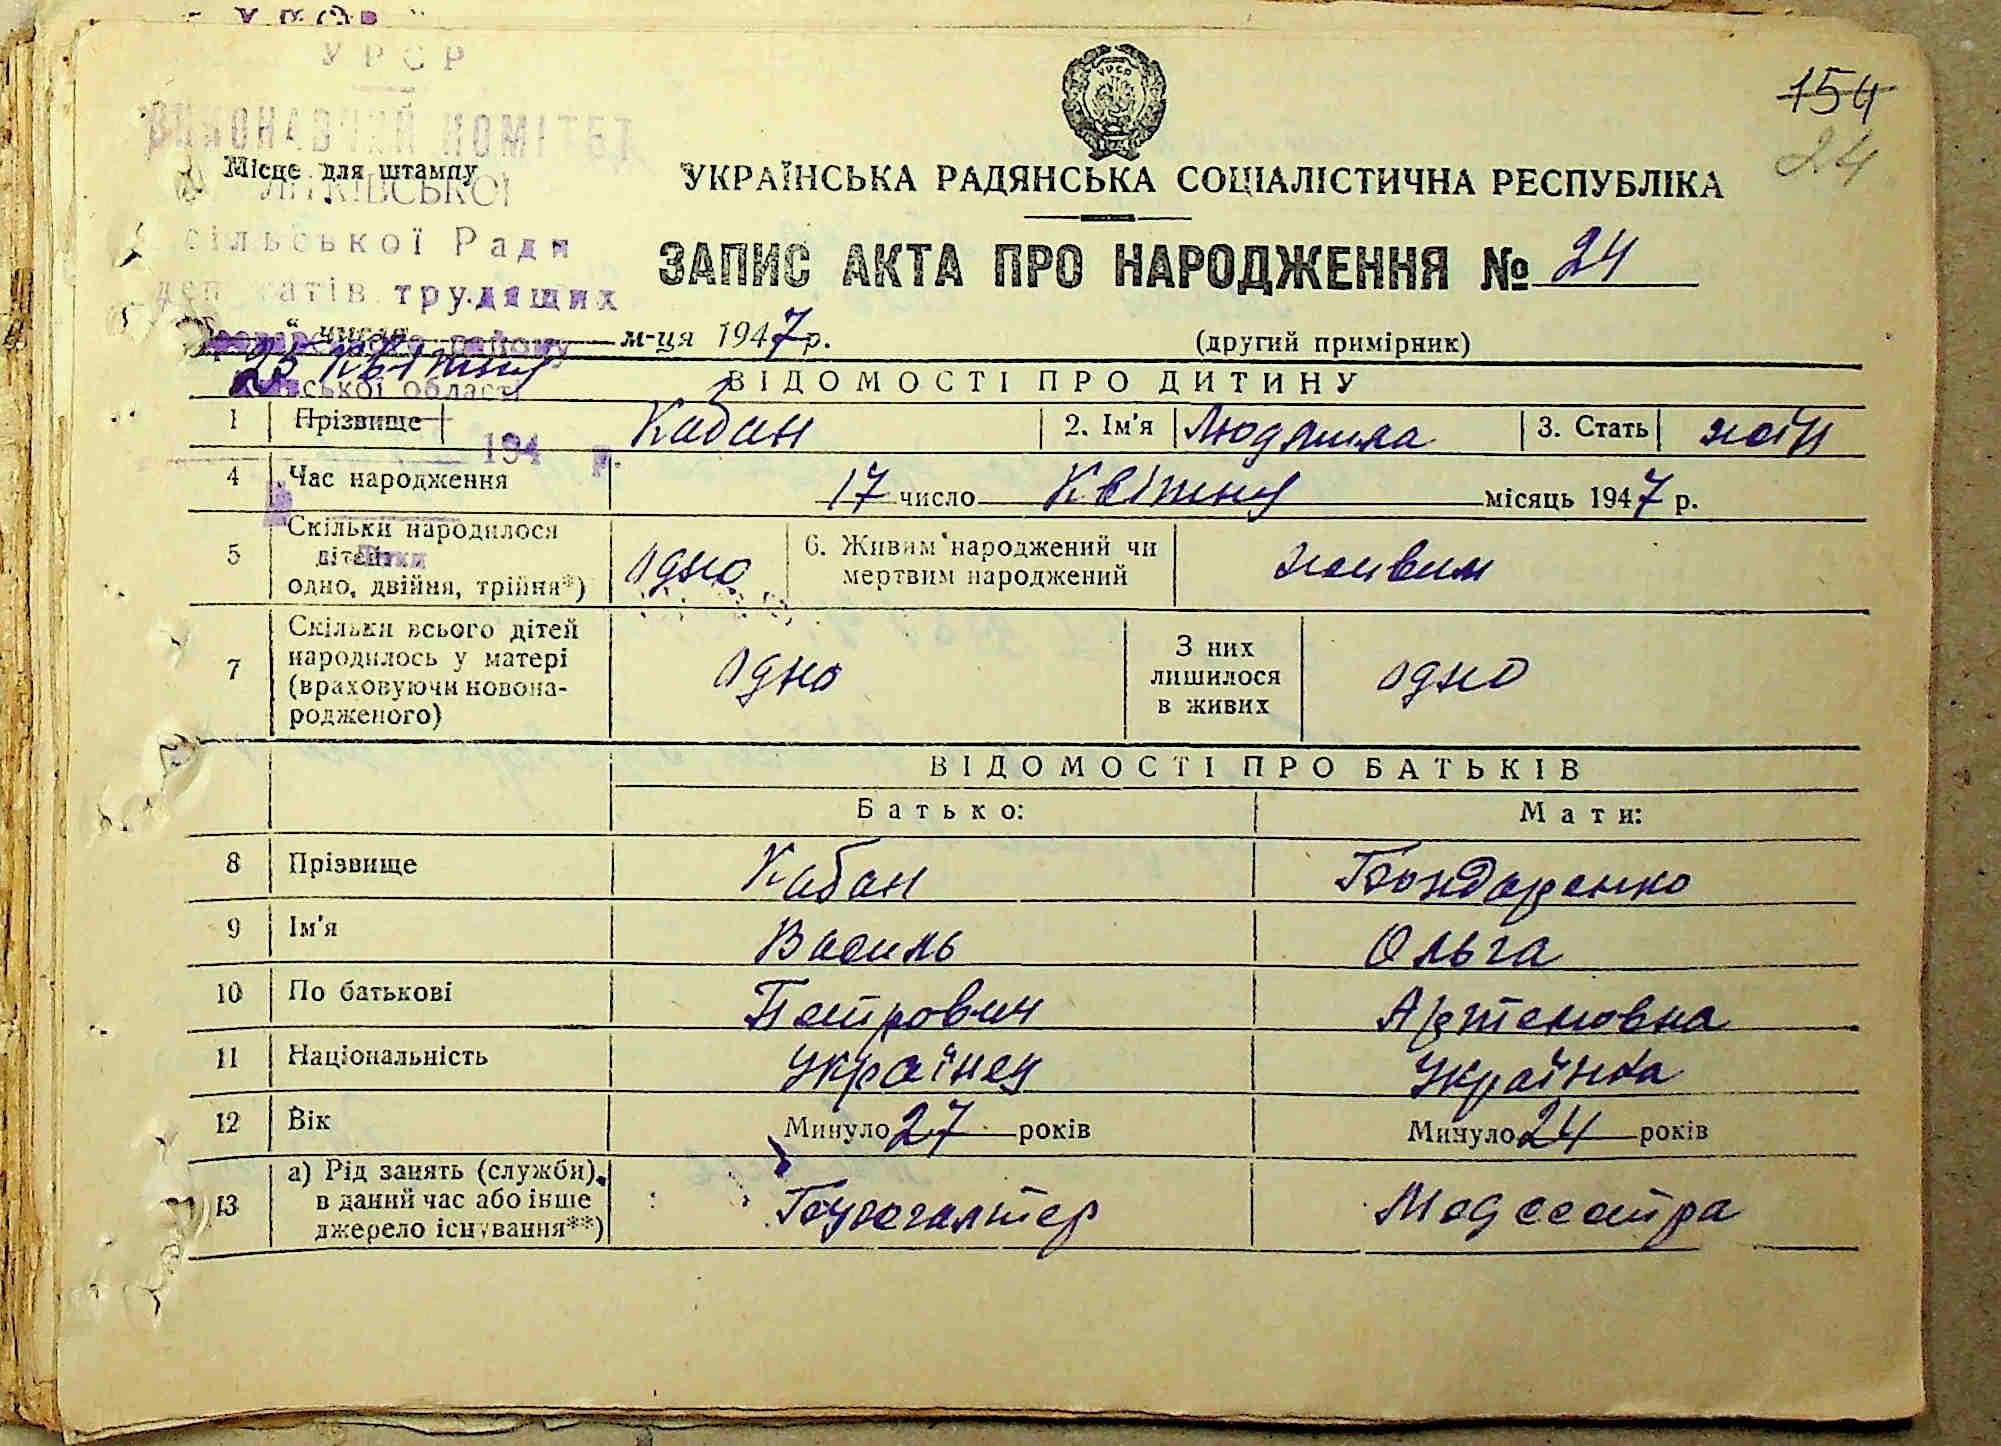 УРСР
154
24
ВИКОНАВЧИЙ КОМІТЕТ
Місце для штампу
ЛІТКІВСЬКОЇ
сільської Ради
депутатів трудящих
району
ської області
194 р.
УРСР
УКРАЇНСЬКА РАДЯНСЬКА СОЦІАЛІСТИЧНА РЕСПУБЛІКА
ЗАПИС АКТА ПРО НАРОДЖЕННЯ № 24
числа м-ця 1947 р. (другий примірник)
25 квітня
ВІДОМОСТІ ПРО ДИТИНУ
1 Прізвище Кабан 2. Ім'я Людмила 3. Стать жін
4 Час народження 17 число Квітня місяць 1947 р.
5 Скільки народилося дітей: одно, двійня, трійня*) одно 6. Живим народжений чи мертвим народжений живим
7 Скільки всього дітей народилось у матері (враховуючи новонародженого) одно З них лишилося в живих одно
ВІДОМОСТІ ПРО БАТЬКІВ
Батько: Мати:
8 Прізвище Кабан Бондаренко
9 Ім'я Василь Ольга
10 По батькові Петрович Артемовна
11 Національність Українец Українка
12 Вік Минуло 27 років Минуло 24 років
13 а) Рід занять (служби) в даний час або інше джерело існування**) Бухгалтер Медсестра